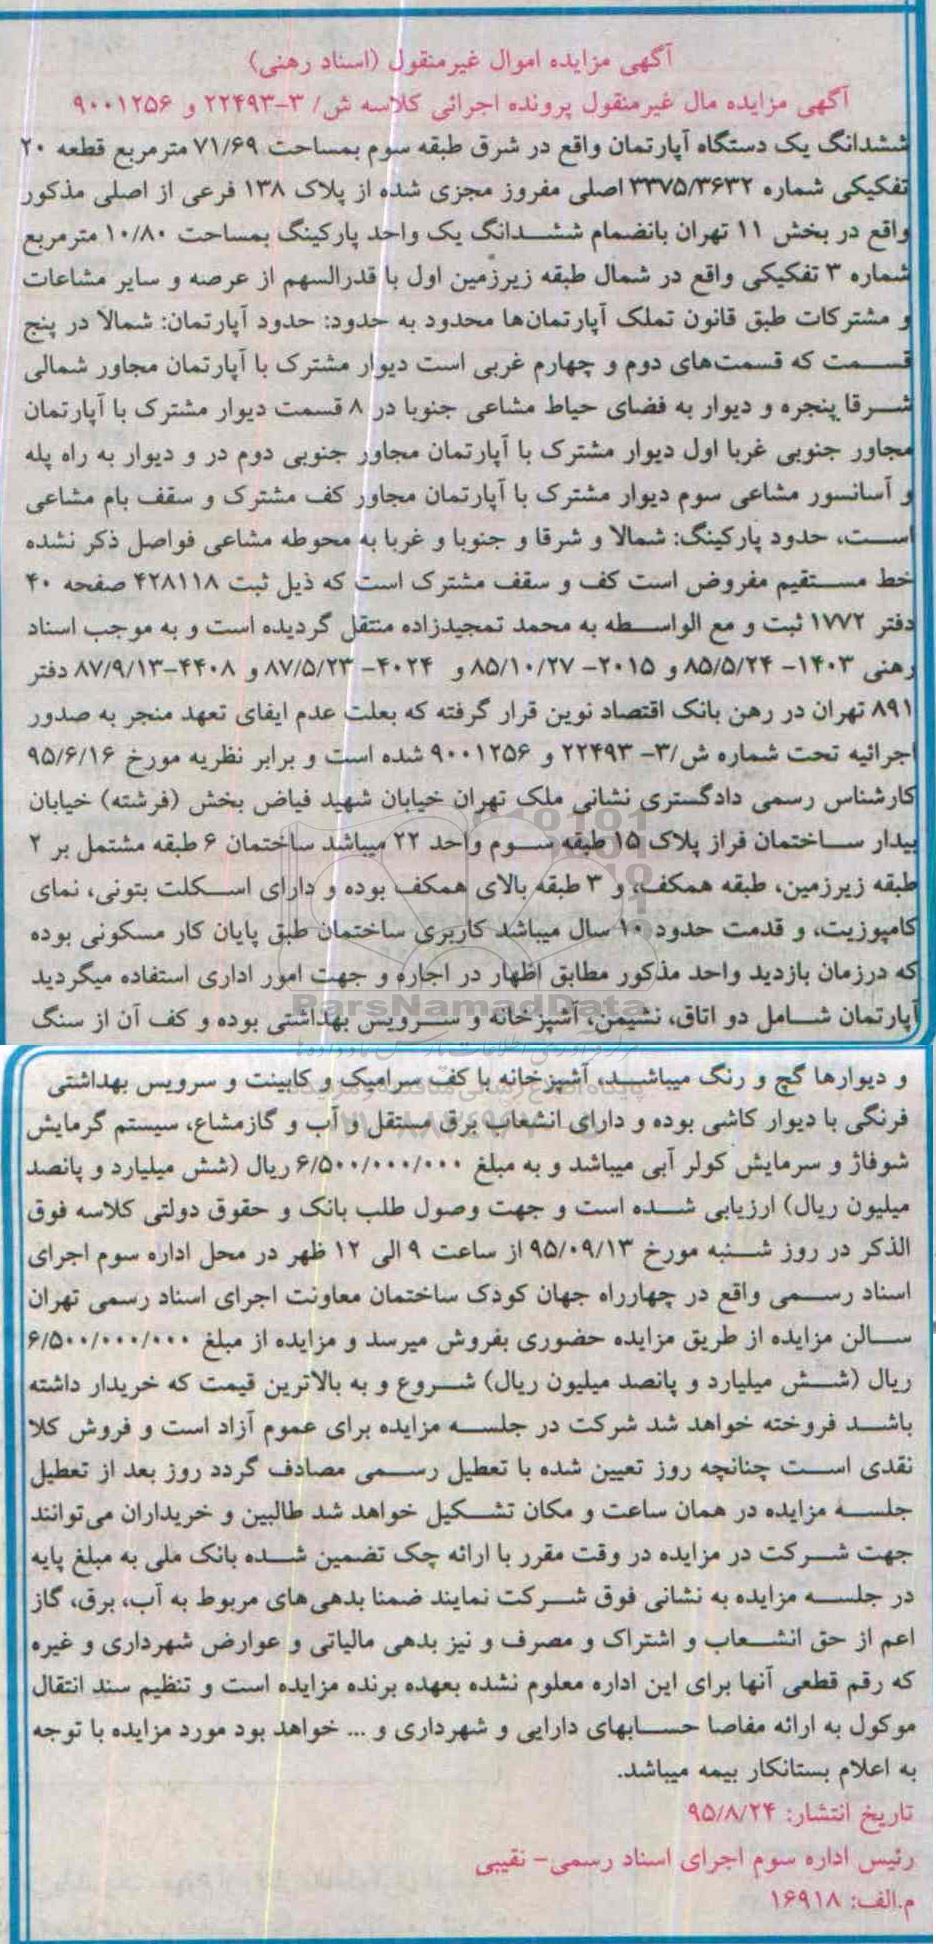 آگهی مزایده اموال غیرمنقول (اسناد رهنی)
آگهی مزایده مال غیرمنقول پرونده اجرائی کلاسه ش/ ۳-۲۲۴۹۳ و ۹۰۰۱۲۵۶
ششدانگ یک دستگاه آپارتمان واقع در شرق طبقه سوم بمساحت ۷۱/۶۹ مترمربع قطعه ۲۰
تفکیکی شماره ۳۳۷۵/۳۶۳۲ اصلی مفروز مجزی شده از پلاک ۱۳۸ فرعی از اصلی مذکور
واقع در بخش ۱۱ تهران بانضمام ششدانگ یک واحد پارکینگ بمساحت ۱۰/۸۰ مترمربع
شماره ۳ تفکیکی واقع در شمال طبقه زیرزمین اول با قدرالسهم از عرصه و سایر مشاعات
و مشترکات طبق قانون تملک آپارتمان‌ها محدود به حدود: حدود آپارتمان: شمالا در پنج
قسمت که قسمت‌های دوم و چهارم غربی است دیوار مشترک با آپارتمان مجاور شمالی
شرقا پنجره و دیوار به فضای حیاط مشاعی جنوبا در ۸ قسمت دیوار مشترک با آپارتمان
مجاور جنوبی غربا اول دیوار مشترک با آپارتمان مجاور جنوبی دوم در و دیوار به راه پله
و آسانسور مشاعی سوم دیوار مشترک با آپارتمان مجاور کف مشترک و سقف بام مشاعی
است، حدود پارکینگ: شمالا و شرقا و جنوبا و غربا به محوطه مشاعی فواصل ذکر نشده
خط مستقیم مفروض است کف و سقف مشترک است که ذیل ثبت ۴۲۸۱۱۸ صفحه ۴۰
دفتر ۱۷۷۲ ثبت و مع الواسطه به محمد تمجیدزاده منتقل گردیده است و به موجب اسناد
رهنی ۱۴۰۳- ۸۵/۵/۲۴ و ۲۰۱۵- ۸۵/۱۰/۲۷ و ۴۰۲۴- ۸۷/۵/۲۳ و ۴۴۰۸-۸۷/۹/۱۳ دفتر
۸۹۱ تهران در رهن بانک اقتصاد نوین قرار گرفته که بعلت عدم ایفای تعهد منجر به صدور
اجرائیه تحت شماره ش/۳- ۲۲۴۹۳ و ۹۰۰۱۲۵۶ شده است و برابر نظریه مورخ ۹۵/۶/۱۶
کارشناس رسمی دادگستری نشانی ملک تهران خیابان شهید فیاض بخش (فرشته) خیابان
بیدار ساختمان فراز پلاک ۱۵ طبقه سوم واحد ۲۲ میباشد ساختمان ۶ طبقه مشتمل بر ۲
طبقه زیرزمین، طبقه همکف، و ۳ طبقه بالای همکف بوده و دارای اسکلت بتونی، نمای
کامپوزیت، و قدمت حدود ۱۰ سال میباشد کاربری ساختمان طبق پایان کار مسکونی بوده
که درزمان بازدید واحد مذکور مطابق اظهار در اجاره و جهت امور اداری استفاده میگردید
آپارتمان شامل دو اتاق، نشیمن، آشپزخانه و سرویس بهداشتی بوده و کف آن از سنگ
ParsNamadData
و دیوارها گچ و رنگ میباشد، آشپزخانه با کف سرامیک و کابینت و سرویس بهداشتی
فرنگی با دیوار کاشی بوده و دارای انشعاب برق مستقل و آب و گازمشاع، سیستم گرمایش
شوفاژ و سرمایش کولر آبی میباشد و به مبلغ ۶/۵۰۰/۰۰۰/۰۰۰ ریال (شش میلیارد و پانصد
میلیون ریال) ارزیابی شده است و جهت وصول طلب بانک و حقوق دولتی کلاسه فوق
الذکر در روز شنبه مورخ ۹۵/۰۹/۱۳ از ساعت ۹ الی ۱۲ ظهر در محل اداره سوم اجرای
اسناد رسمی واقع در چهارراه جهان کودک ساختمان معاونت اجرای اسناد رسمی تهران
سالن مزایده از طریق مزایده حضوری بفروش میرسد و مزایده از مبلغ ۶/۵۰۰/۰۰۰/۰۰۰
ریال (شش میلیارد و پانصد میلیون ریال) شروع و به بالاترین قیمت که خریدار داشته
باشد فروخته خواهد شد شرکت در جلسه مزایده برای عموم آزاد است و فروش کلا
نقدی است چنانچه روز تعیین شده با تعطیل رسمی مصادف گردد روز بعد از تعطیل
جلسه مزایده در همان ساعت و مکان تشکیل خواهد شد طالبین و خریداران می‌توانند
جهت شرکت در مزایده در وقت مقرر با ارائه چک تضمین شده بانک ملی به مبلغ پایه
در جلسه مزایده به نشانی فوق شرکت نمایند ضمنا بدهی‌های مربوط به آب، برق، گاز
اعم از حق انشعاب و اشتراک و مصرف و نیز بدهی مالیاتی و عوارض شهرداری و غیره
که رقم قطعی آنها برای این اداره معلوم نشده بعهده برنده مزایده است و تنظیم سند انتقال
موکول به ارائه مفاصا حسابهای دارایی و شهرداری و ... خواهد بود مورد مزایده با توجه
به اعلام بستانکار بیمه میباشد.
تاریخ انتشار: ۹۵/۸/۲۴
رئیس اداره سوم اجرای اسناد رسمی- نقیبی
م.الف: ۱۶۹۱۸